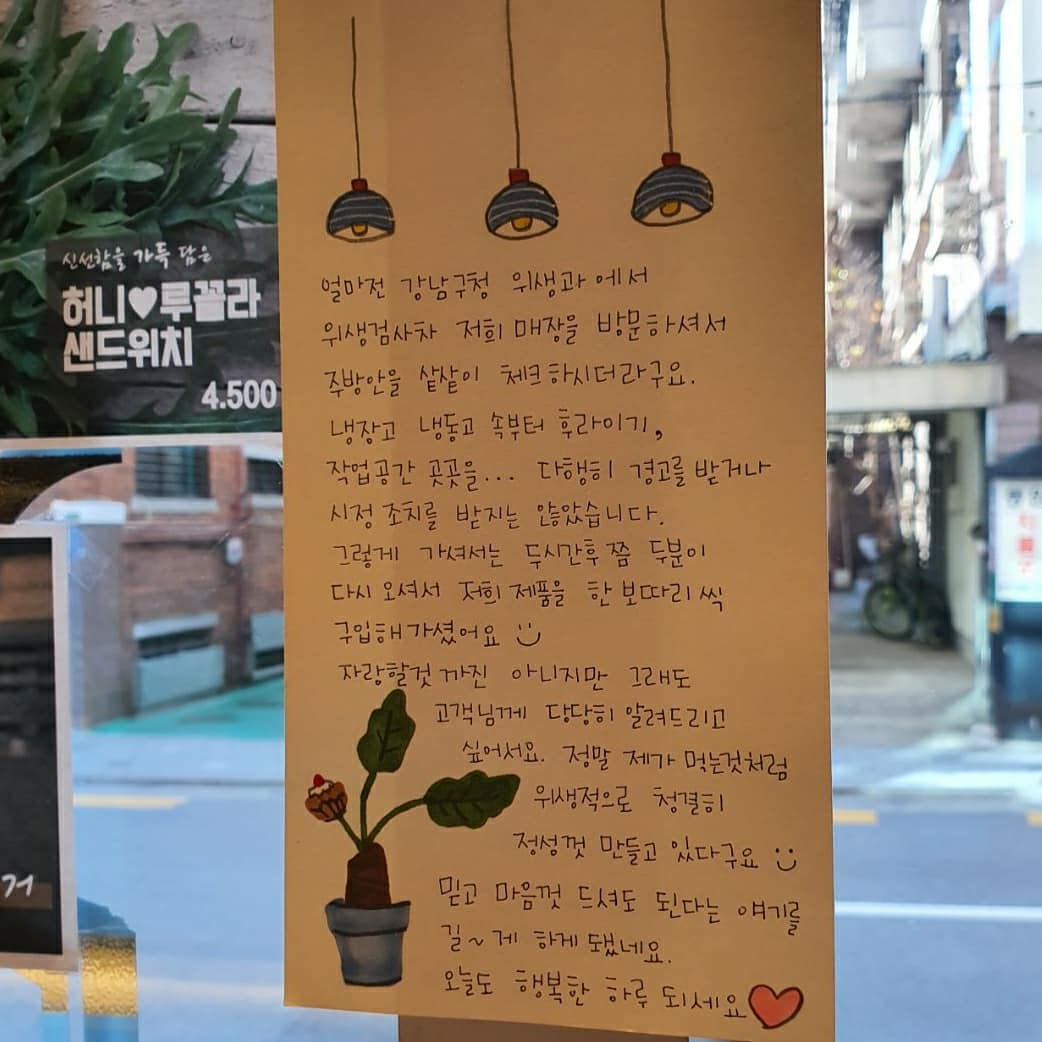 신선함을 가득 담은
허니♥루꼴라
샌드위치
4.500
얼마전 강남구청 위생과에서
위생검사차 저희 매장을 방문하셔서
주방안을 샅샅이 체크하시더라구요.
냉장고 냉동고 속부터 후라이기,
작업공간 곳곳을... 다행히 경고를 받거나
시정 조치를 받지는 않았습니다.
그렇게 가셔서는 두시간후 쯤 두분이
다시 오셔서 저희 제품을 한 보따리 씩
구입해 가셨어요 :)
자랑할것 까진 아니지만 그래도
고객님께 당당히 알려드리고
싶어서요. 정말 제가 먹는것처럼
위생적으로 청결히
정성껏 만들고 있다구요 :)
믿고 마음껏 드셔도 된다는 얘기를
길~게 하게 됐네요.
오늘도 행복한 하루 되세요♥
거